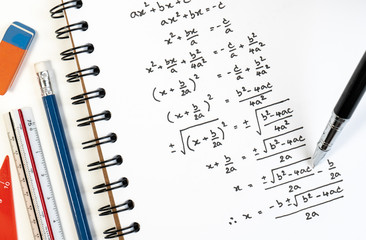 ax² + bx + c = 0
ax² + bx = -c
x² + bx/a = -c/a
x² + bx/a + b²/4a² = -c/a + b²/4a²
(x + b/2a)² = -c/a + b²/4a²
(x + b/2a)² = b² - 4ac/4a²
±√(x + b/2a)² = ±√b² - 4ac/4a²
x + b/2a = ±√b² - 4ac/2a
x = ±√b² - 4ac/2a - b/2a
∴ x = -b ±√b² - 4ac/2a